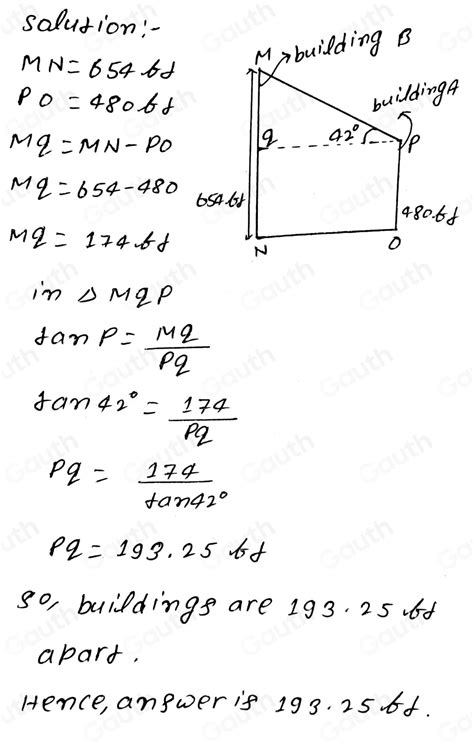 Solution:-
MN = 654 ft
PO = 480 ft
Mq = MN - PO
Mq = 654 - 480
Mq = 174 ft
M
building B
building A
q
42°
P
654 ft
480 ft
N
O
in △ MqP
tan P = Mq
Pq
tan 42° = 174
Pq
Pq = 174
tan 42°
Pq = 193.25 ft
So, buildings are 193.25 ft
apart.
Hence, answer is 193.25 ft.
Gauth